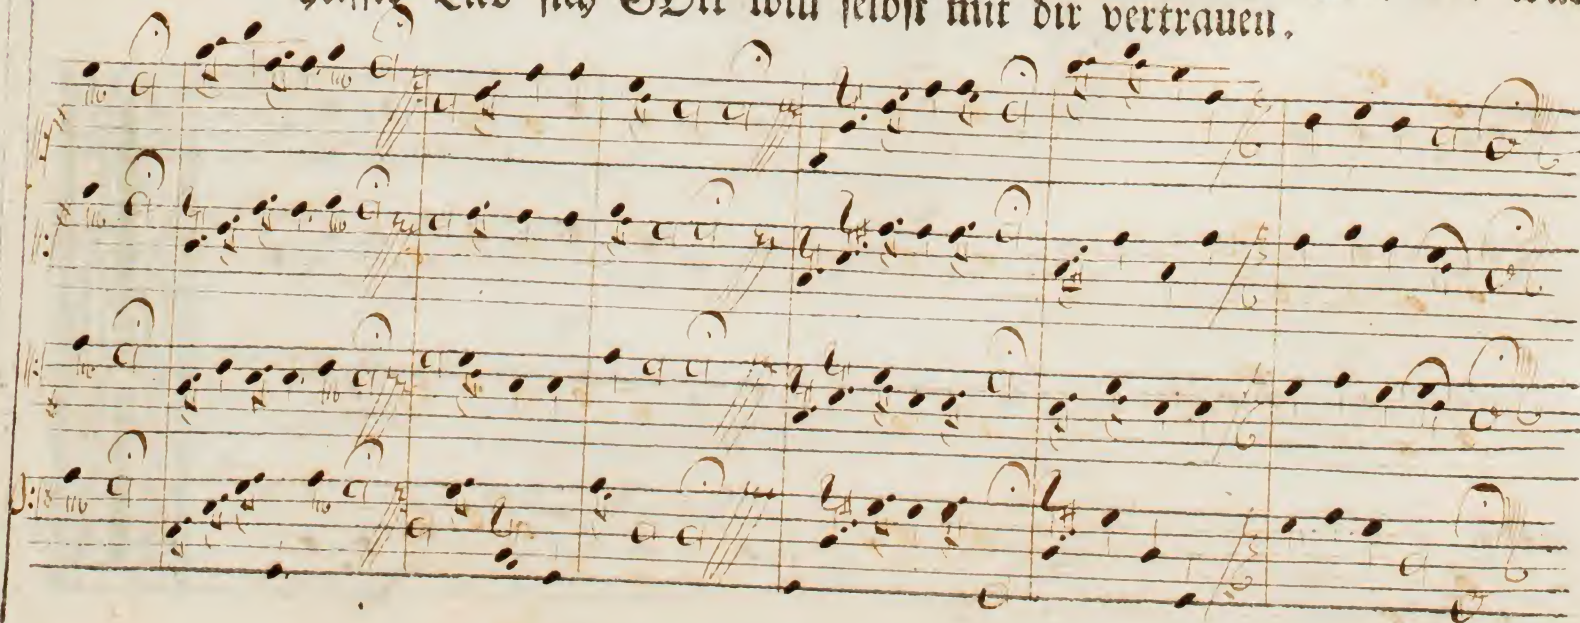 Lieb sich GOtt will selbst mit dir vertrauen.